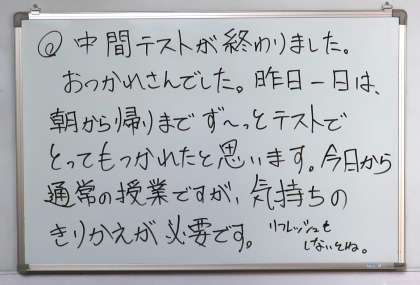 @ 中間テストが終わりました。
おつかれさんでした。昨日一日は、
朝から帰りまで ず〜っとテストで
とってもつかれたと思います。今日から
通常の授業ですが、気持ちの
きりかえが必要です。 リフレッシュも
しないとね。